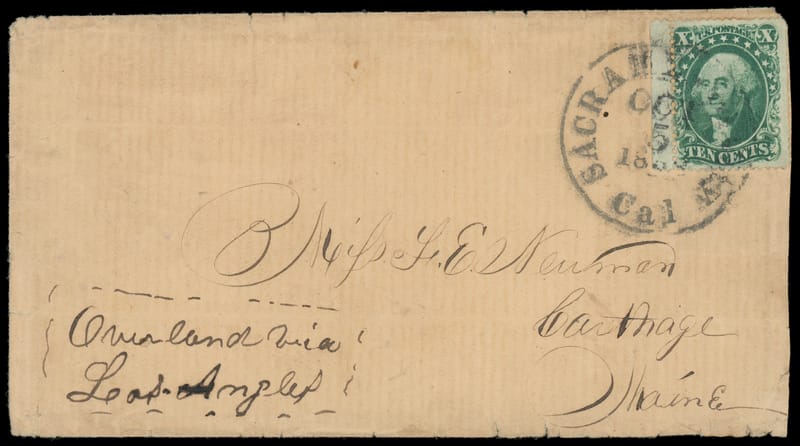 X U.S. POSTAGE X
TEN CENTS
SACRAM
OC
5
18
Cal
Miss F. E. Newman
Carthage
Maine
Overland via
Los Angles